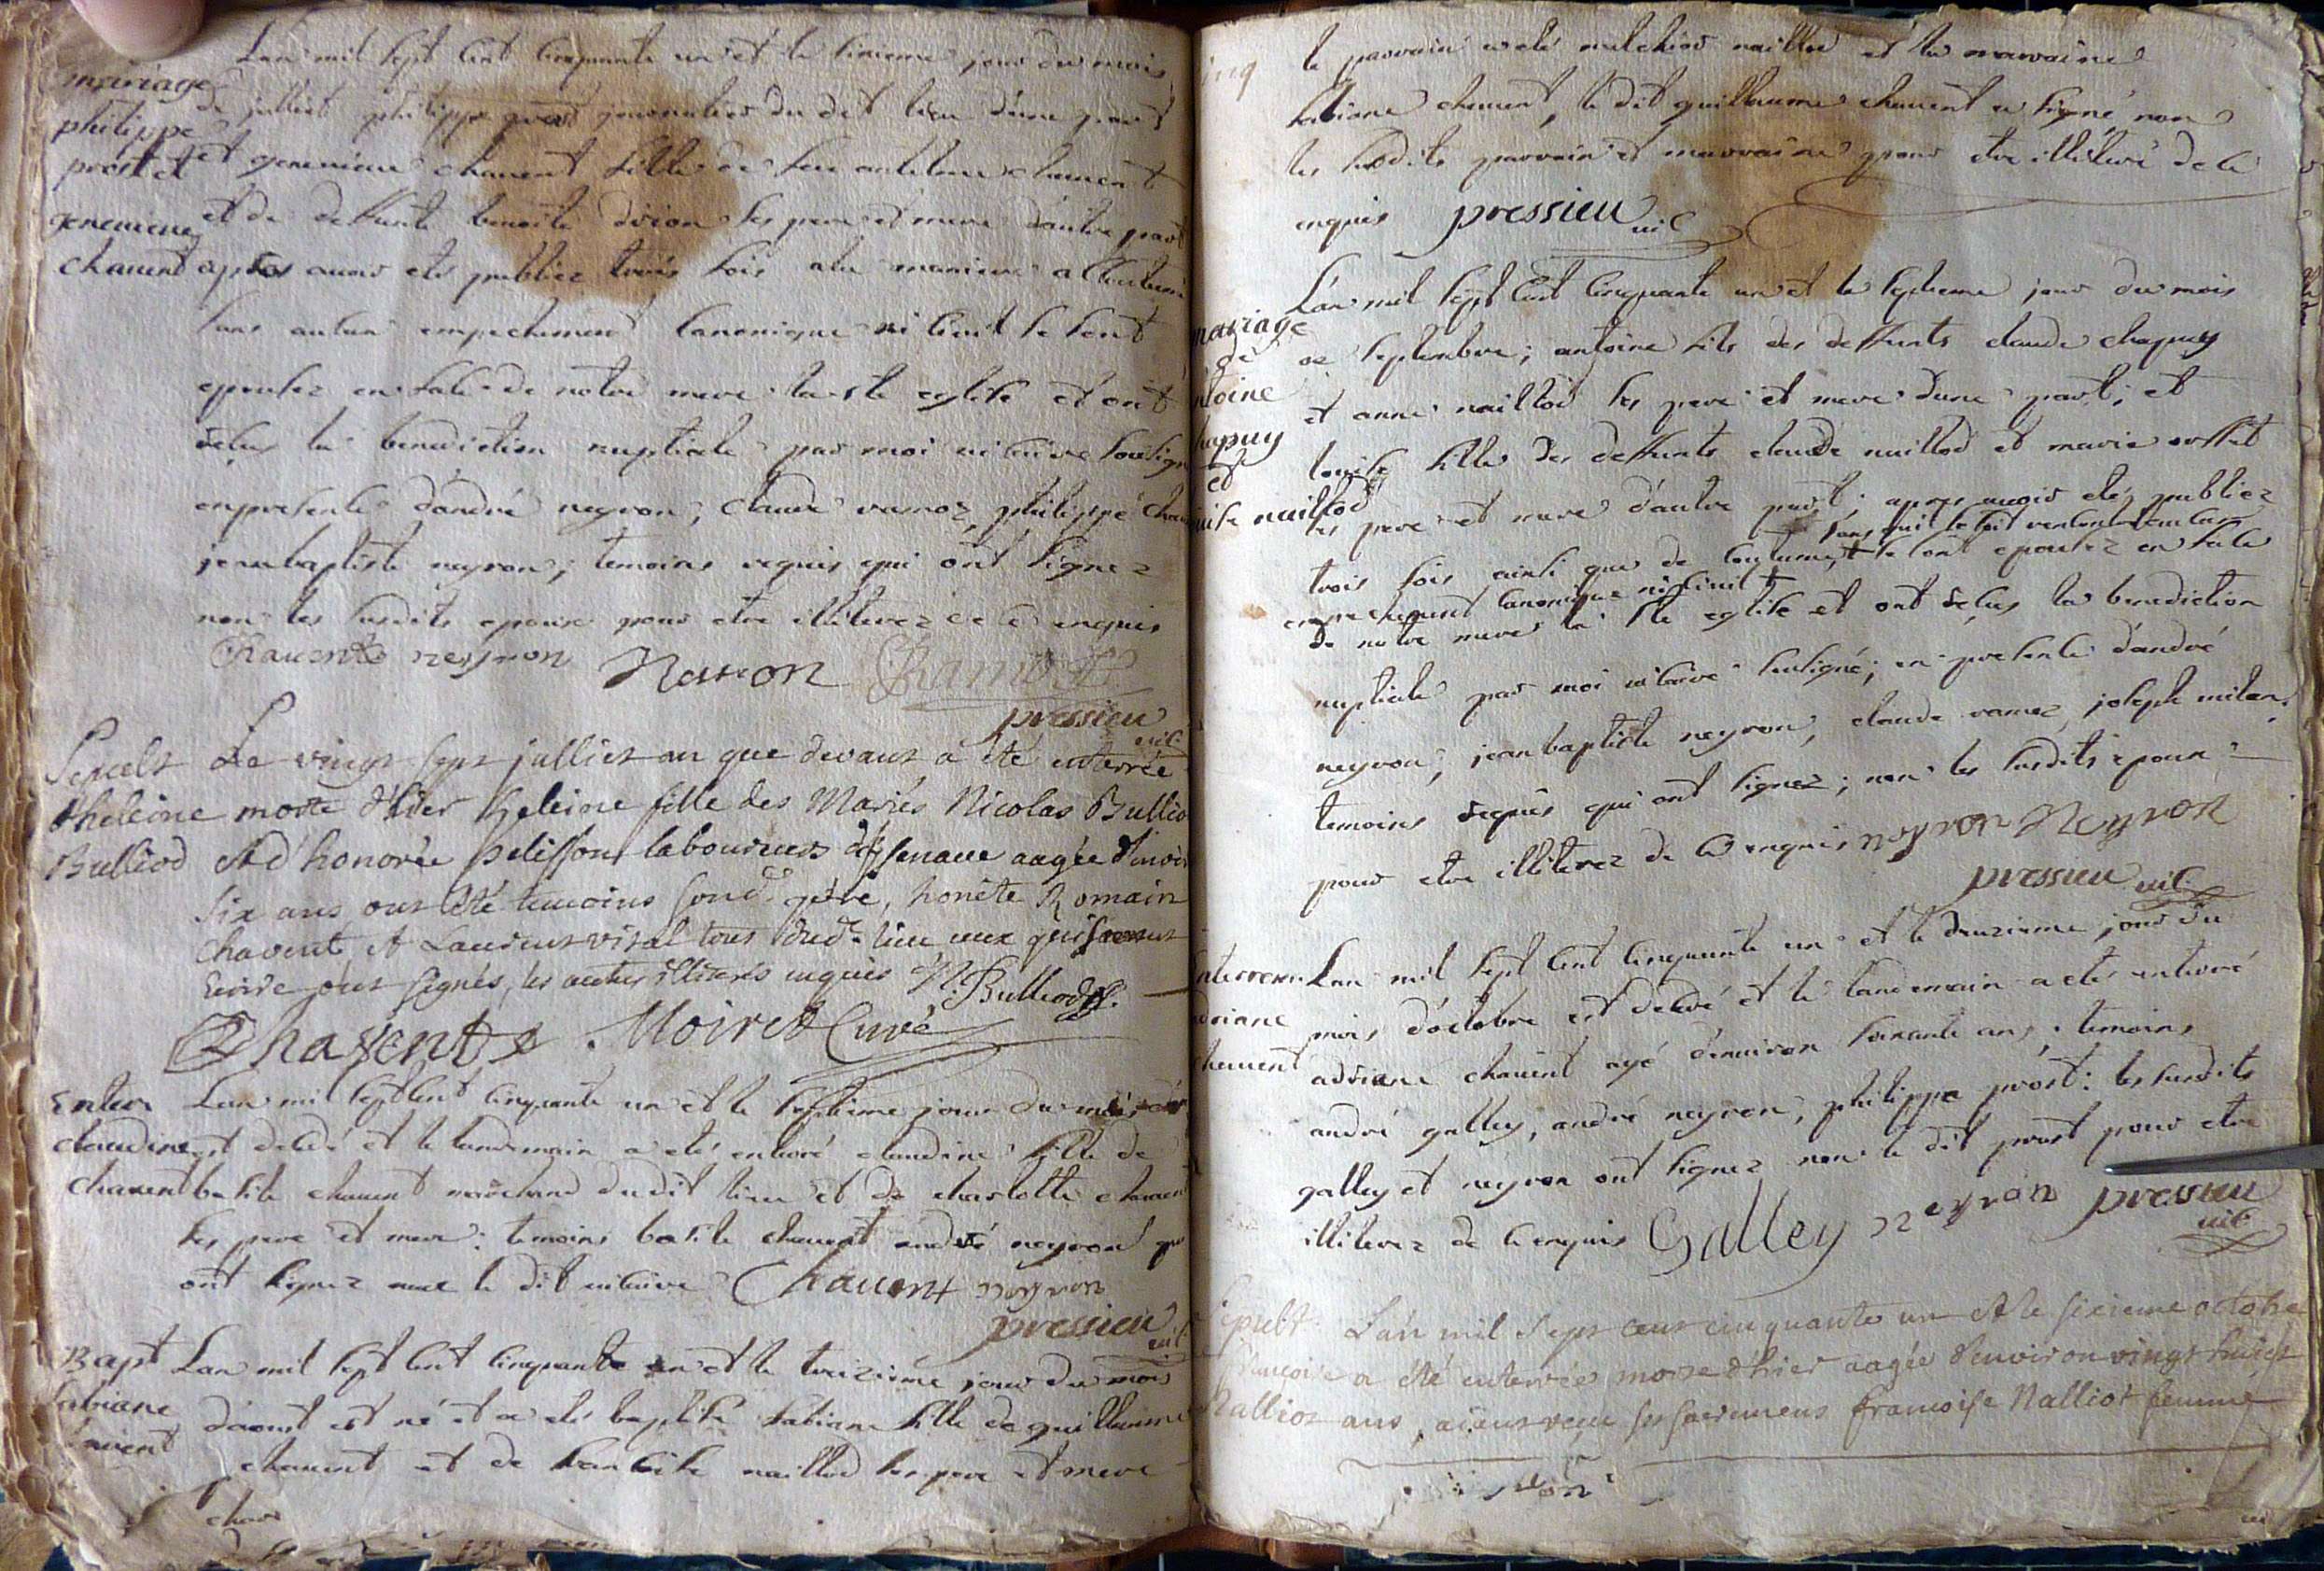 Lan mil sept cent cinquante un et le sixieme jour du mois
mariage
de julliet philippe prost journalier du dit lieu d'une part
philippe
prost et
et genevieve chavent fille de feu antelme chavent
genevieve
et de deffunte benoite drion ses pere et mere d'autre part
chavent
apres avoir eté publiez trois fois a la maniere accoutumé
sans aucun empechement canonique ni civil se sont
epousez en face de notre mere la ste eglise et ont
reçus la benediction nuptiale par moi vicaire soussigné
en presence d'andré neyron, claude ramoz, philippe chavent
jean baptiste neyron; temoins requis qui ont signez
non les susdits epoux pour etre illiterez de ce enquis
Chavent neyron Neyron Chamoz
pressieu
vic
Sepult Le vingt sept julliet an que devant a été enterrée
d'heleine morte d'hier heleine fille des Mariés Nicolas Bulliod
Bulliod et d'honorée pelisson laboureurs d'essenave aagée d'environ
six ans ont été temoins son d. pére, honête Romain
Chavent, et Laurent vital tous dud. lieu ceux qui savent
ecrire ont signés, les autres illiterés enquis N. Bulliod
Chavent . Moiret Curé
Enter. Lan mil sept cent cinquante un et le septieme jour du mois
claudine est decedé et le landemain a eté enterré claudine fille de
chavent basile chavent marchand dudit lieu et de charlotte chavent
ses pere et mere: temoins basile chavent andré neyron qui
ont signez avec le dit vicaire Chavent neyron
pressieu
vic
Bapt Lan mil sept cent cinquante un et le treizieme jour du mois
fabiane d'aoust est né et a eté baptisé fabiane fille de guillaume
chavent
chavent et de françoise naillod ses pere et mere
le parrain a eté melchior naillod et la marraine
fabiane chavent, le dit guillaume chavent a signé non
les susdits parrain et marraine pour etre illiteré de ce
enquis pressieu vic
Lan mil sept cent cinquante un et le septieme jour du mois
mariage
de
de septembre; antoine fils des deffunts claude chapuy
ntoine
et anne naillod ses pere et mere d'une part; et
hapuy
louise fille des deffunts claude naillod et marie rosset
et
uise naillod
ses pere et mere d'autre part; apres avoir etéz publiez
sans qu'il se soit rencontré aucun
trois fois ainsi que de coutume, + se sont epousez en face
empechement canonique ni civil +
de notre mere la ste eglise et ont reçus la benediction
nuptiale par moi vicaire soussigné; en presence d'andré
neyron, jean baptiste neyron, claude ramoz, joseph milan,
temoins requis qui ont signez; non les susdits epoux
pour etre illiterez de ce enquis neyron Neyron
pressieu vic
Enterrem Lan mil sept cent cinquante un et le deuxieme jour du
driane mois d'octobre est decedé et le landemain a eté enterré
havent adriane chavent agé d'environ soixante ans; temoins
andré galley, andré neyron, philippe prost: les susdits
galley et neyron ont signez non le dit prost pour etre
illiterez de ce enquis Galley neyron pressieu
vic
Sepult. Lan mil sept cent cinquante un et le sixieme octobre
françoise a été enterrée morte d'hier aagée d'environ vingt huict
Nalliot ans, aiant reçu ses sacrements francoise Nalliot femme